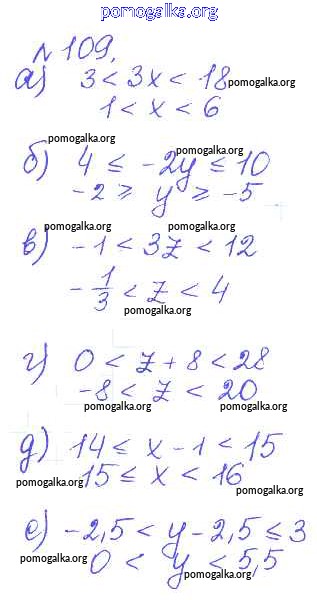 pomogalka.org
№ 109.
а) 3 < 3x < 18
pomogalka.org
1 < x < 6
pomogalka.org
б) 4 ≤ -2y ≤ 10
pomogalka.org
-2 ≥ y ≥ -5
pomogalka.org pomogalka.org
в) -1 < 3z < 12
-1/3 < z < 4
pomogalka.org
г) 0 < z + 8 < 28
-8 < z < 20
pomogalka.org pomogalka.org
д) 14 ≤ x - 1 < 15
15 ≤ x < 16
pomogalka.org pomogalka.org
е) -2,5 < y - 2,5 ≤ 3
pomogalka.org
0 < y < 5,5
pomogalka.org